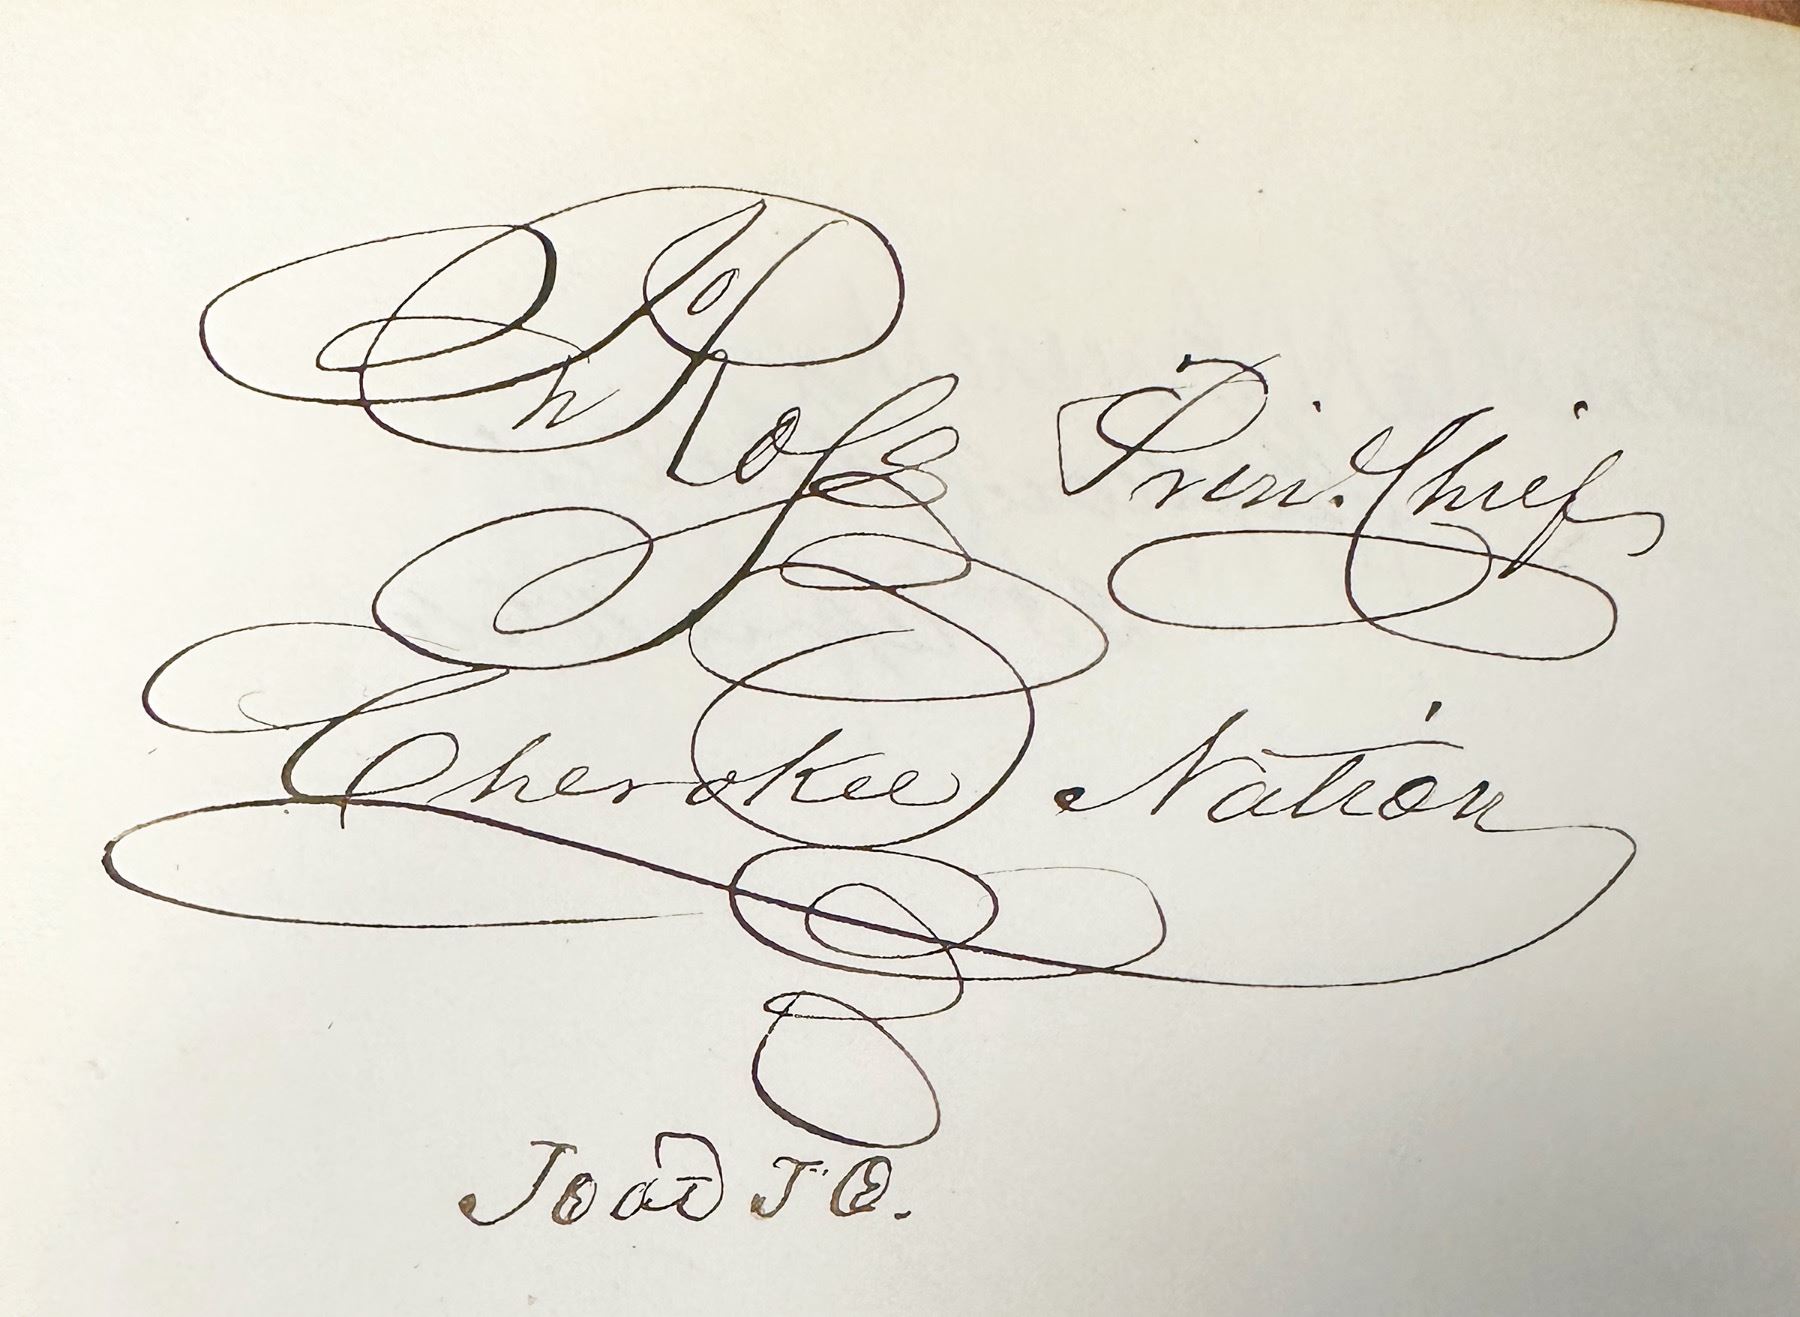 Jno Ross Prin. Chief
Cherokee Nation
ᎫᏫᏍᎫᏫ.